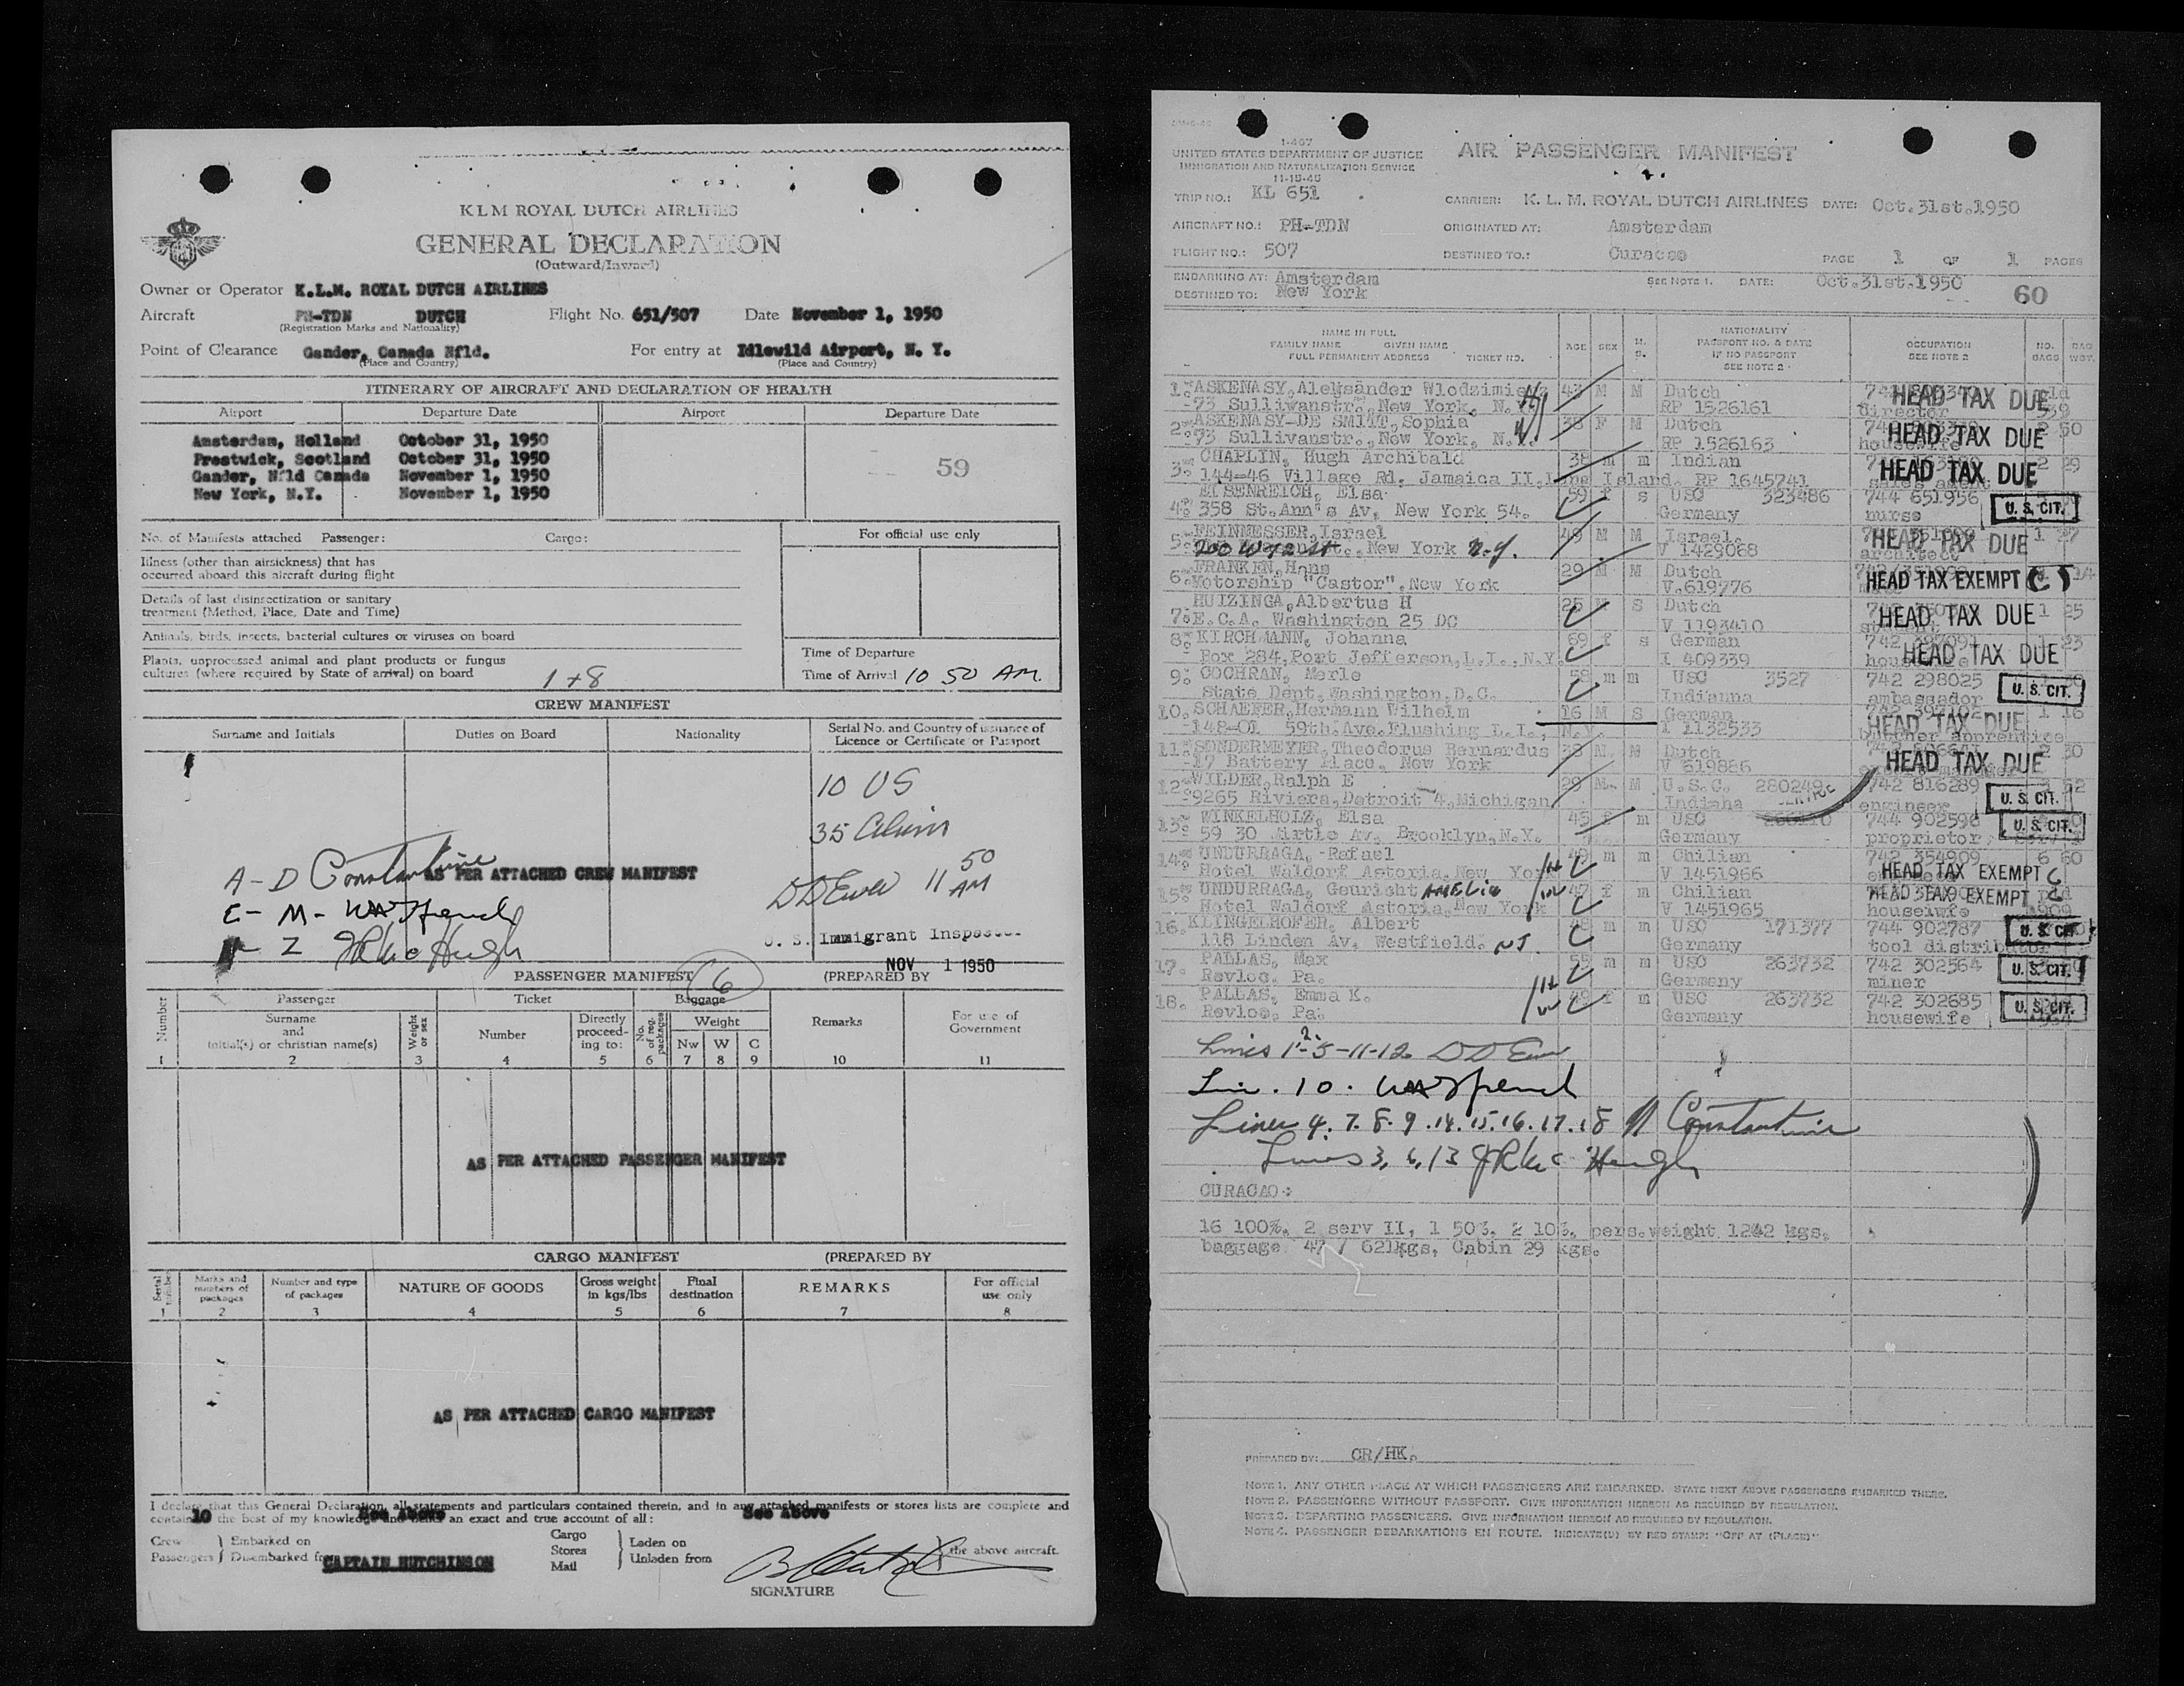 KLM ROYAL DUTCH AIRLINES
GENERAL DECLARATION
(Outward/Inward)
Owner or Operator K.L.M. ROYAL DUTCH AIRLINES
Aircraft PH-TDN DUTCH Flight No. 651/507 Date November 1, 1950
(Registration Marks and Nationality)
Point of Clearance Gander, Canada Nfld. For entry at Idlewild Airport, N. Y.
(Place and Country) (Place and Country)
ITINERARY OF AIRCRAFT AND DECLARATION OF HEALTH
Airport Departure Date Airport Departure Date
Amsterdam, Holland October 31, 1950
Prestwick, Scotland October 31, 1950
Gander, Nfld Canada November 1, 1950
New York, N.Y. November 1, 1950
59
No. of Manifests attached Passenger: Cargo: For official use only
Illness (other than airsickness) that has
occurred aboard this aircraft during flight
Details of last disinsectization or sanitary
treatment (Method, Place, Date and Time)
Animals, birds, insects, bacterial cultures or viruses on board
Plants, unprocessed animal and plant products or fungus
cultures (where required by State of arrival) on board 1+8
Time of Departure
Time of Arrival 10 50 AM.
CREW MANIFEST
Surname and Initials Duties on Board Nationality Serial No. and Country of issuance of
Licence or Certificate or Passport
10 US
35 Aliens
A-D Constantine
AS PER ATTACHED CREW MANIFEST
11 50 AM
E-M-
Z
U. S. Immigrant Inspector
NOV 1 1950
PASSENGER MANIFEST 6 (PREPARED BY
Number Passenger Ticket Baggage
Surname
and
initial(s) or christian name(s) Weight or sex Number Directly
proceed-
ing to: No. of reg. packages Weight
Nw W C Remarks For use of
Government
1 2 3 4 5 6 7 8 9 10 11
AS PER ATTACHED PASSENGER MANIFEST
CARGO MANIFEST (PREPARED BY
Serial number Marks and
numbers of
packages Number and type
of packages NATURE OF GOODS Gross weight
in kgs/lbs Final
destination REMARKS For official
use only
1 2 3 4 5 6 7 8
AS PER ATTACHED CARGO MANIFEST
I declare that this General Declaration, all statements and particulars contained therein, and in any attached manifests or stores lists are complete and
contain 10 the best of my knowledge and belief an exact and true account of all:
See Above See Above
Crew Embarked on Cargo Laden on
Passengers Disembarked from Stores Unladen from the above aircraft.
CAPTAIN HUTCHINSON Mail
SIGNATURE
1-467
UNITED STATES DEPARTMENT OF JUSTICE AIR PASSENGER MANIFEST
IMMIGRATION AND NATURALIZATION SERVICE
11-15-45
TRIP NO.: KL 651 CARRIER: K. L. M. ROYAL DUTCH AIRLINES DATE: Oct.31st.1950
AIRCRAFT NO.: PH-TDN ORIGINATED AT: Amsterdam
FLIGHT NO.: 507 DESTINED TO.: Curacao PAGE 1 OF 1 PAGES
EMBARKING AT: Amsterdam SEE NOTE 1. DATE: Oct.31st.1950
DESTINED TO: New York 60
NAME IN FULL
FAMILY NAME GIVEN NAME
FULL PERMANENT ADDRESS TICKET NO. AGE SEX M. S. NATIONALITY
PASSPORT NO. & DATE
IF NO PASSPORT
SEE NOTE 2 OCCUPATION
SEE NOTE 2 NO. BAGS BAG WGT.
1. ASKENASY, Aleksänder Wlodzimierz 43 M M Dutch HEAD TAX DUE
73 Sullivanstr., New York, N.Y. RP 1526161 director
2. ASKENASY-DE SMIT, Sophia 38 F M Dutch 2 50
73 Sullivanstr., New York, N.Y. RP 1526163 housewife HEAD TAX DUE
3. CHAPLIN, Hugh Archibald 38 m m Indian 2 29
144-46 Village Rd. Jamaica II, Long Island. RP 1645741 sales agent HEAD TAX DUE
4. EISENREICH, Elsa 59 f s USC 323486 744 651956
358 St.Ann's Av, New York 54. Germany nurse U. S. CIT.
5. FEINMESSER, Israel 49 M M Israel. 1 27
200 W 72 St., New York N.Y. V 1429068 architect HEAD TAX DUE
6. FRANKEN, Hans 29 M M Dutch
Motorship "Castor", New York V.619776 HEAD TAX EXEMPT
7. HUIZINGA, Albertus H 25 M S Dutch 1 25
E.C.A. Washington 25 DC V 1193410 student HEAD TAX DUE
8. KIRCHMANN, Johanna 69 f s German 742 397091 1 23
Box 284, Port Jefferson, L.I., N.Y. I 409339 HEAD TAX DUE
9. COCHRAN, Merle 58 m m USC 3527 742 298025
State Dept. Washington, D.C. Indianna ambassador U. S. CIT.
10. SCHAEFER, Hermann Wilhelm 16 M S German 742 397102 1 16
148-01 59th.Ave. Flushing L.I., N.Y. I 1132533 butcher apprentice HEAD TAX DUE
11. SONDERMEYER, Theodorus Bernardus 38 M M Dutch 2 30
17 Battery Place, New York V 619886 HEAD TAX DUE
12. WILDER, Ralph E 29 M. M U.S.C. 280249 742 816289 52
9265 Riviera, Detroit 4, Michigan Indiana engineer U. S. CIT.
13. WINKELHOLZ, Elsa 45 f m USC 744 902596
59 30 Mirtle Av. Brooklyn, N.Y. Germany proprietor U. S. CIT.
14. UNDURRAGA, Rafael m m Chilian 742 354909 6 60
Hotel Waldorf Astoria, New York V 1451966 HEAD TAX EXEMPT
15. UNDURRAGA, Geuricht AMELIA 47 f m Chilian
Hotel Waldorf Astoria, New York V 1451965 housewife HEAD TAX EXEMPT
16. KLINGELHOFER, Albert 48 m m USC 171377 744 902787
118 Linden Av. Westfield. NJ. Germany tool distributor U. S. CIT.
17. PALLAS, Max 55 m m USC 263732 742 302564
Revloc, Pa. Germany miner U. S. CIT.
18. PALLAS, Emma K. 49 f m USC 263732 742 302685
Revloc, Pa. Germany housewife U. S. CIT.
Lines 1-2-5-11-12
Line. 10.
Lines 4. 7. 8. 9. 14. 15. 16. 17. 18 Constantine
Lines 3, 6, 13
CURACAO:
16 100%. 2 serv II, 1 50%. 2 10%. pers.weight 1242 kgs.
baggage 47 / 621kgs, Cabin 29 kgs.
PREPARED BY: CR/HK.
NOTE 1. ANY OTHER PLACE AT WHICH PASSENGERS ARE EMBARKED. STATE NEXT ABOVE PASSENGERS EMBARKED THERE.
NOTE 2. PASSENGERS WITHOUT PASSPORT. GIVE INFORMATION HEREON AS REQUIRED BY REGULATION.
NOTE 3. DEPARTING PASSENGERS. GIVE INFORMATION HEREON AS REQUIRED BY REGULATION.
NOTE 4. PASSENGER DEBARKATIONS EN ROUTE. INDICATE(D) BY RED STAMP: "OFF AT (PLACE)"